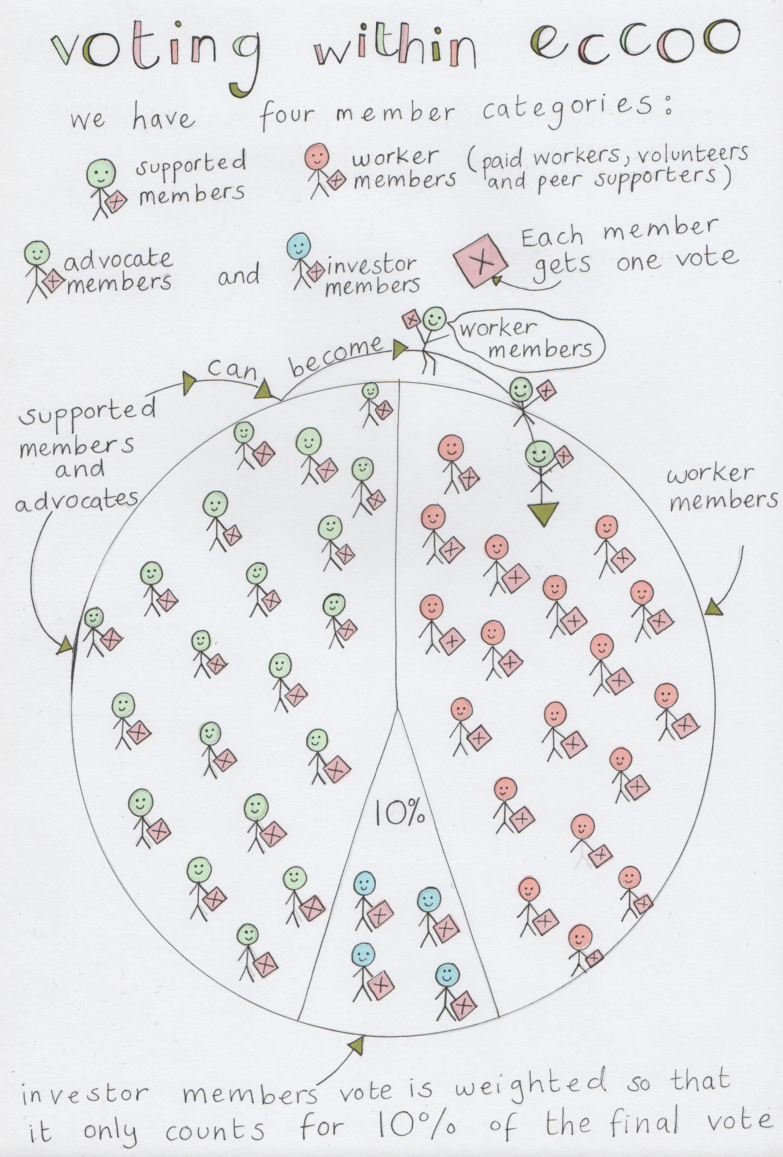 voting within eccoo
we have four member categories:
supported
members
worker
members
(paid workers, volunteers
and peer supporters)
advocate
members
and
investor
members
Each member
gets one vote
can become
worker
members
supported
members
and
advocates
worker
members
10%
investor members vote is weighted so that
it only counts for 10% of the final vote